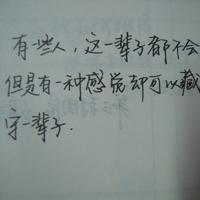 有一些人，这一辈子都不会
但是有一种感觉却可以藏
守一辈子.